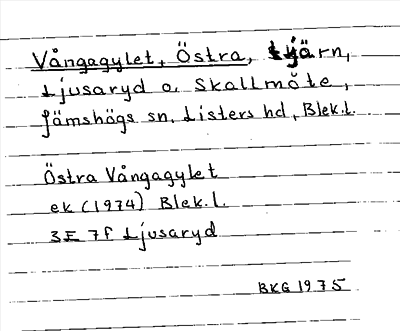 Vångagylet, Östra, tjärn,
Ljusaryd o. Skallmöte,
Jämshögs sn, Listers hd, Blek.l.
Östra Vångagylet
ek (1974) Blek.l.
3E 7f Ljusaryd
BKG 1975